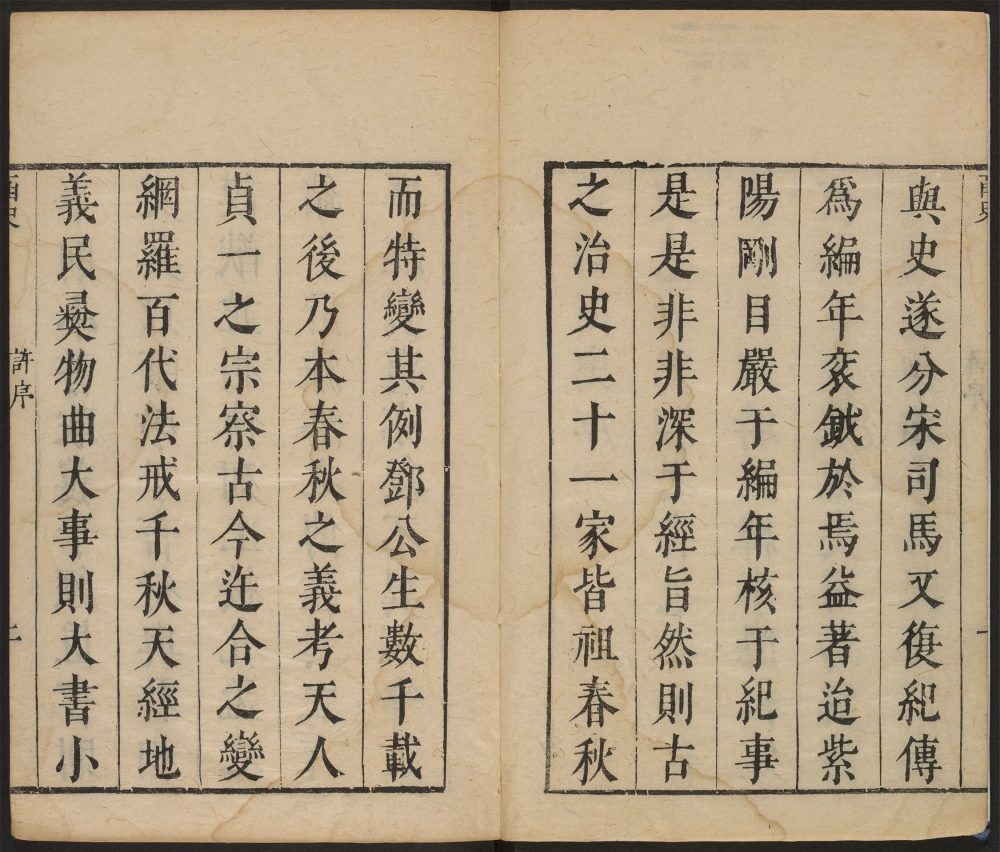 與史遂分宋司馬又復紀傳
爲編年衮鉞於焉益著迨紫
陽剛目嚴于編年核于紀事
是是非非深于經旨然則古
之治史二十一家皆祖春秋
而特變其例鄧公生數千載
之後乃本春秋之義考天人
貞一之宗察古今迕合之變
網羅百代法戒千秋天經地
義民彛物曲大事則大書小
許序
二